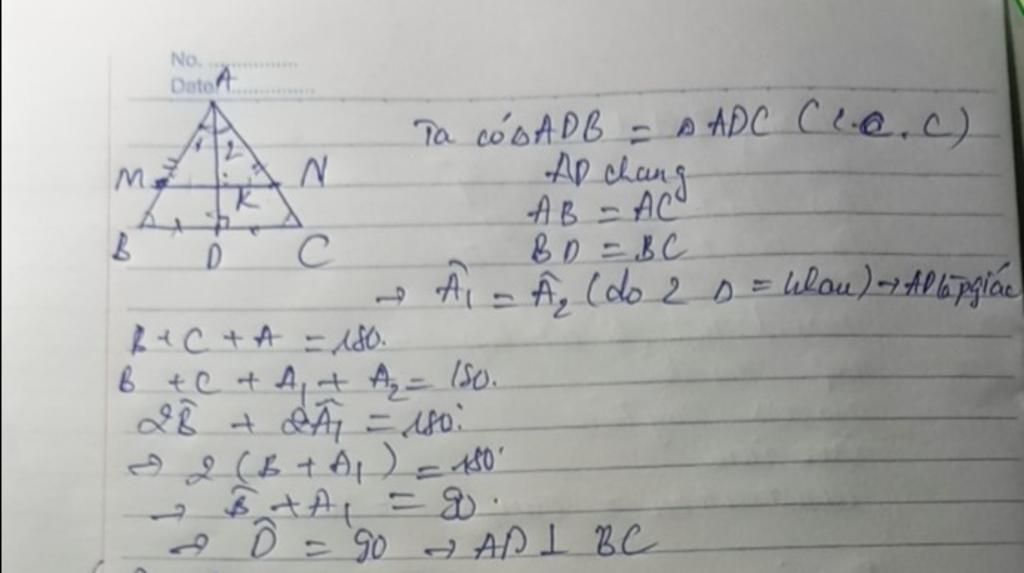 No. ................
Date ................
A
1 2
M N
K
B D C
Ta có △ADB = △ADC (c.c.c)
AD chung
AB = AC
BD = BC
→ Â₁ = Â₂ (do 2 △ = nhau) → AD là pgiác
B + C + A = 180.
B + C + A₁ + A₂ = 180.
2B̂ + 2Â₁ = 180°
→ 2 (B + A₁) = 180°
→ B̂ + A₁ = 90.
→ D̂ = 90 → AD ⊥ BC